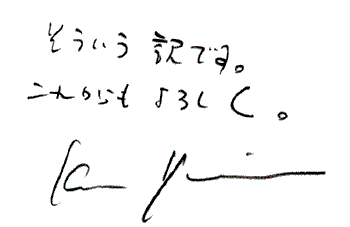 そういう訳です。
これからもよろしく。